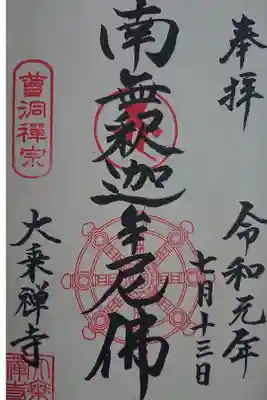 奉拝
令和元年
七月十三日
南無釈迦牟尼佛
曹洞禅宗
大乗禅寺